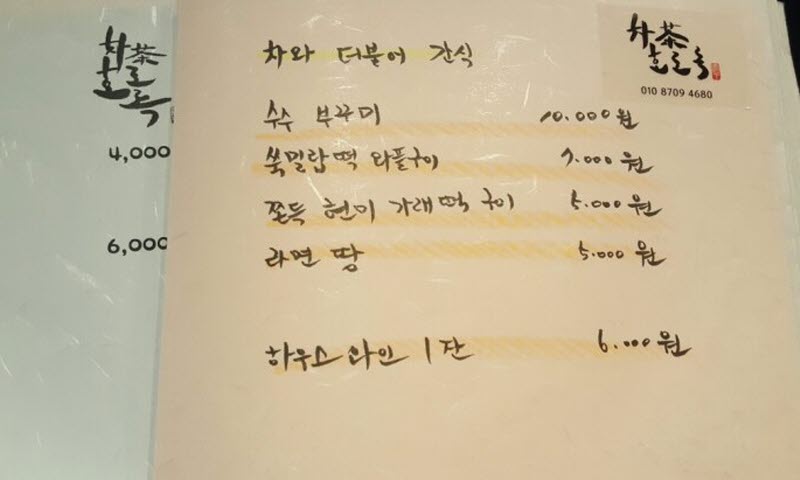 차茶
호로록
4,000
6,000
차茶
호로록
010 8709 4680
차와 더불어 간식
수수 부꾸미 10.000원
쑥밀랍떡 와플구이 7.000원
쫀득 현미 가래떡 구이 5.000원
라면 땅 5.000원
하우스 와인 1잔 6.000원